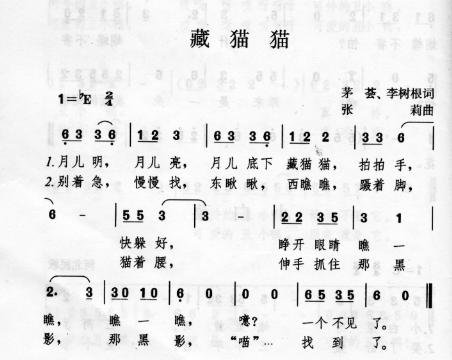 藏猫猫
1=♭E 2/4
茅荟、李树根词
张莉曲
6 3 3 6 | 1 2 3 | 6 3 3 6 | 1 2 2 | 3 3 6 |
1.月儿明, 月儿亮, 月儿 底下 藏猫猫, 拍拍 手,
2.别着急, 慢慢找, 东瞅 瞅, 西瞧瞧, 蹑着 脚,
6 - | 5 5 3 | 3 - | 2 2 3 5 | 3 1 |
快躲 好, 睁开 眼睛 瞧 一
猫着 腰, 伸手 抓住 那 黑
2. 3 | 3 1 0 1 0 | 6 0 | 0 0 | 6 5 3 5 | 6 0 ‖
瞧, 瞧 一 瞧, 噫? 一个 不见 了。
影, 那 黑 影, “喵”… 找 到 了。